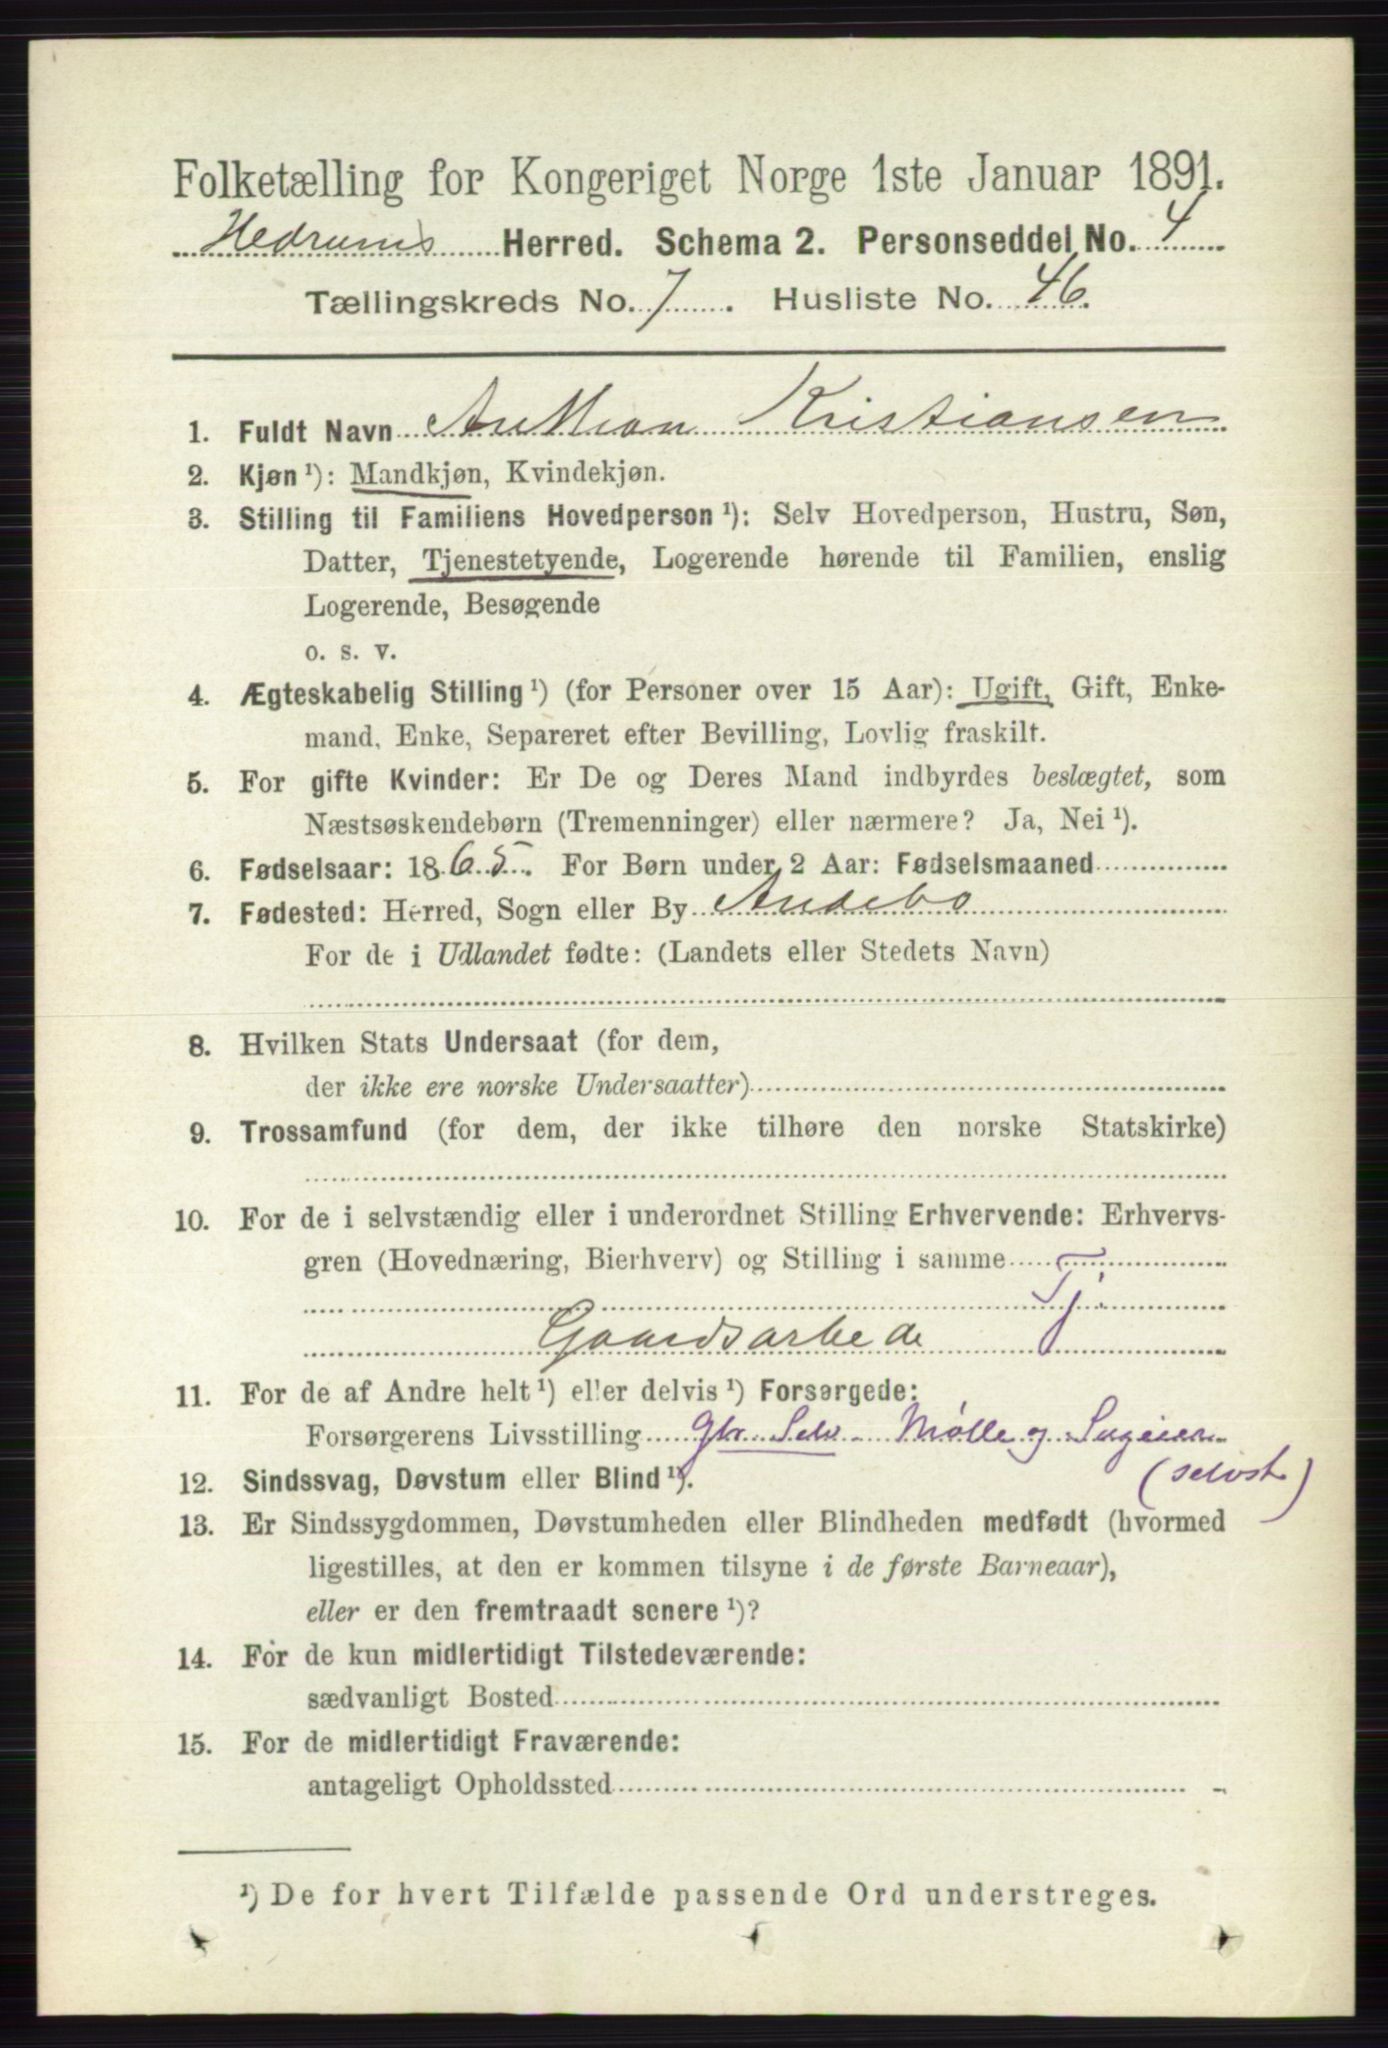 Folketælling for Kongeriget Norge 1ste Januar 1891.
Hedrums Herred. Schema 2. Personseddel No. 4
Tællingskreds No. 7. Husliste No. 46.
1. Fuldt Navn Anthon Kristiansen
2. Kjøn ¹): Mandkjøn, Kvindekjøn.
3. Stilling til Familiens Hovedperson ¹): Selv Hovedperson, Hustru, Søn,
Datter, Tjenestetyende, Logerende hørende til Familien, enslig
Logerende, Besøgende
o. s. v.
4. Ægteskabelig Stilling ¹) (for Personer over 15 Aar): Ugift, Gift, Enke-
mand, Enke, Separeret efter Bevilling, Lovlig fraskilt.
5. For gifte Kvinder: Er De og Deres Mand indbyrdes beslægtet, som
Næstsøskendebørn (Tremenninger) eller nærmere? Ja, Nei ¹).
6. Fødselsaar: 1865. For Børn under 2 Aar: Fødselsmaaned
7. Fødested: Herred, Sogn eller By Andebo
For de i Udlandet fødte: (Landets eller Stedets Navn)
8. Hvilken Stats Undersaat (for dem,
der ikke ere norske Undersaatter)
9. Trossamfund (for dem, der ikke tilhøre den norske Statskirke)
10. For de i selvstændig eller i underordnet Stilling Erhvervende: Erhvervs-
gren (Hovednæring, Bierhverv) og Stilling i samme
Tj
Gaardsarbede
11. For de af Andre helt ¹) eller delvis ¹) Forsørgede:
Forsørgerens Livsstilling Gbr. Selv. Mølle og Sageier
(selvst)
12. Sindssvag, Døvstum eller Blind ¹).
13. Er Sindssygdommen, Døvstumheden eller Blindheden medfødt (hvormed
ligestilles, at den er kommen tilsyne i de første Barneaar),
eller er den fremtraadt senere ¹)?
14. For de kun midlertidigt Tilstedeværende:
sædvanligt Bosted
15. For de midlertidigt Fraværende:
antageligt Opholdssted
¹) De for hvert Tilfælde passende Ord understreges.